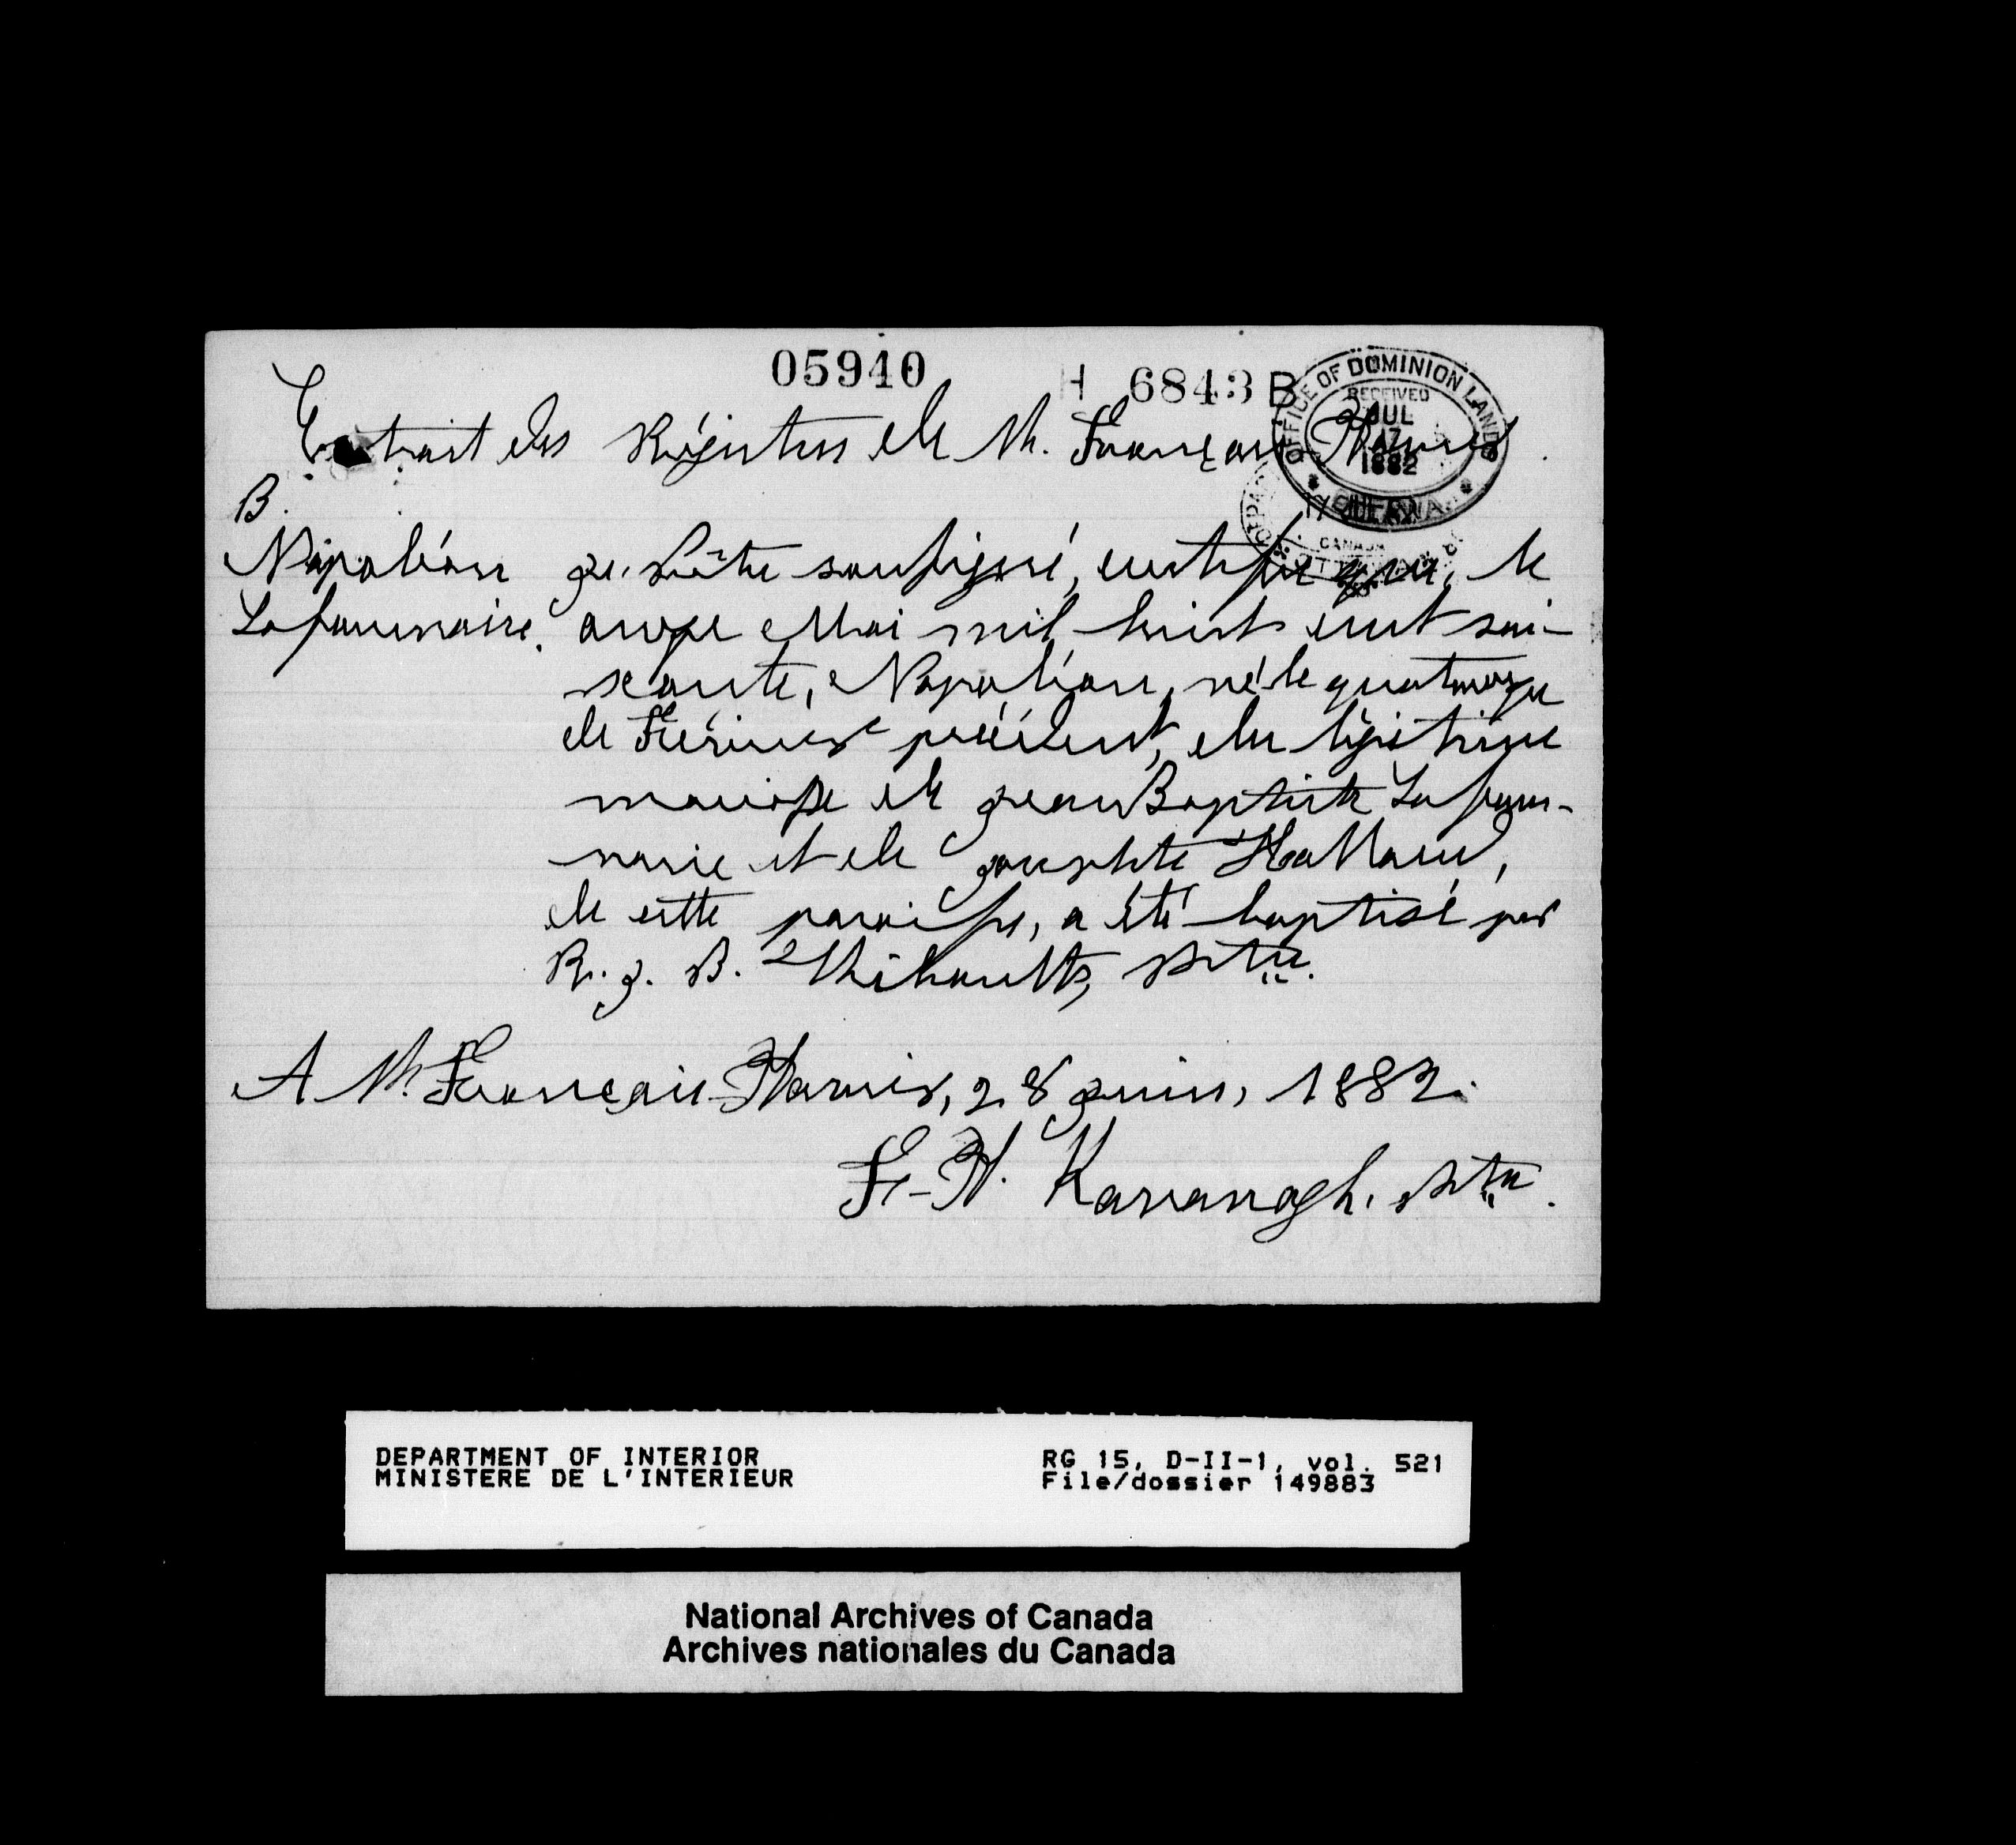 05940
H 6843 B
OFFICE OF DOMINION LANDS
RECEIVED
JUL
17
1882
OTTAWA
CANADA
Extrait des Régistres de St. François Xavier.
B.
Napoléon
Lafournaise.
Je, Prêtre soussigné, certifie que, le
onze Mai mil huit cent soi-
xante, Napoléon, né le quatorze
de Février précédent, du légitime
mariage de Jean Baptiste Lafour-
naise et de Josephte
de cette paroisse, a été baptisé par
R. J. B. Thibault, Ptre.
A St. François-Xavier, 28 Juin, 1882.
F.-X. Kavanagh, Ptre.
DEPARTMENT OF INTERIOR
MINISTERE DE L'INTERIEUR
RG 15, D-II-1, vol. 521
File/dossier 149883
National Archives of Canada
Archives nationales du Canada